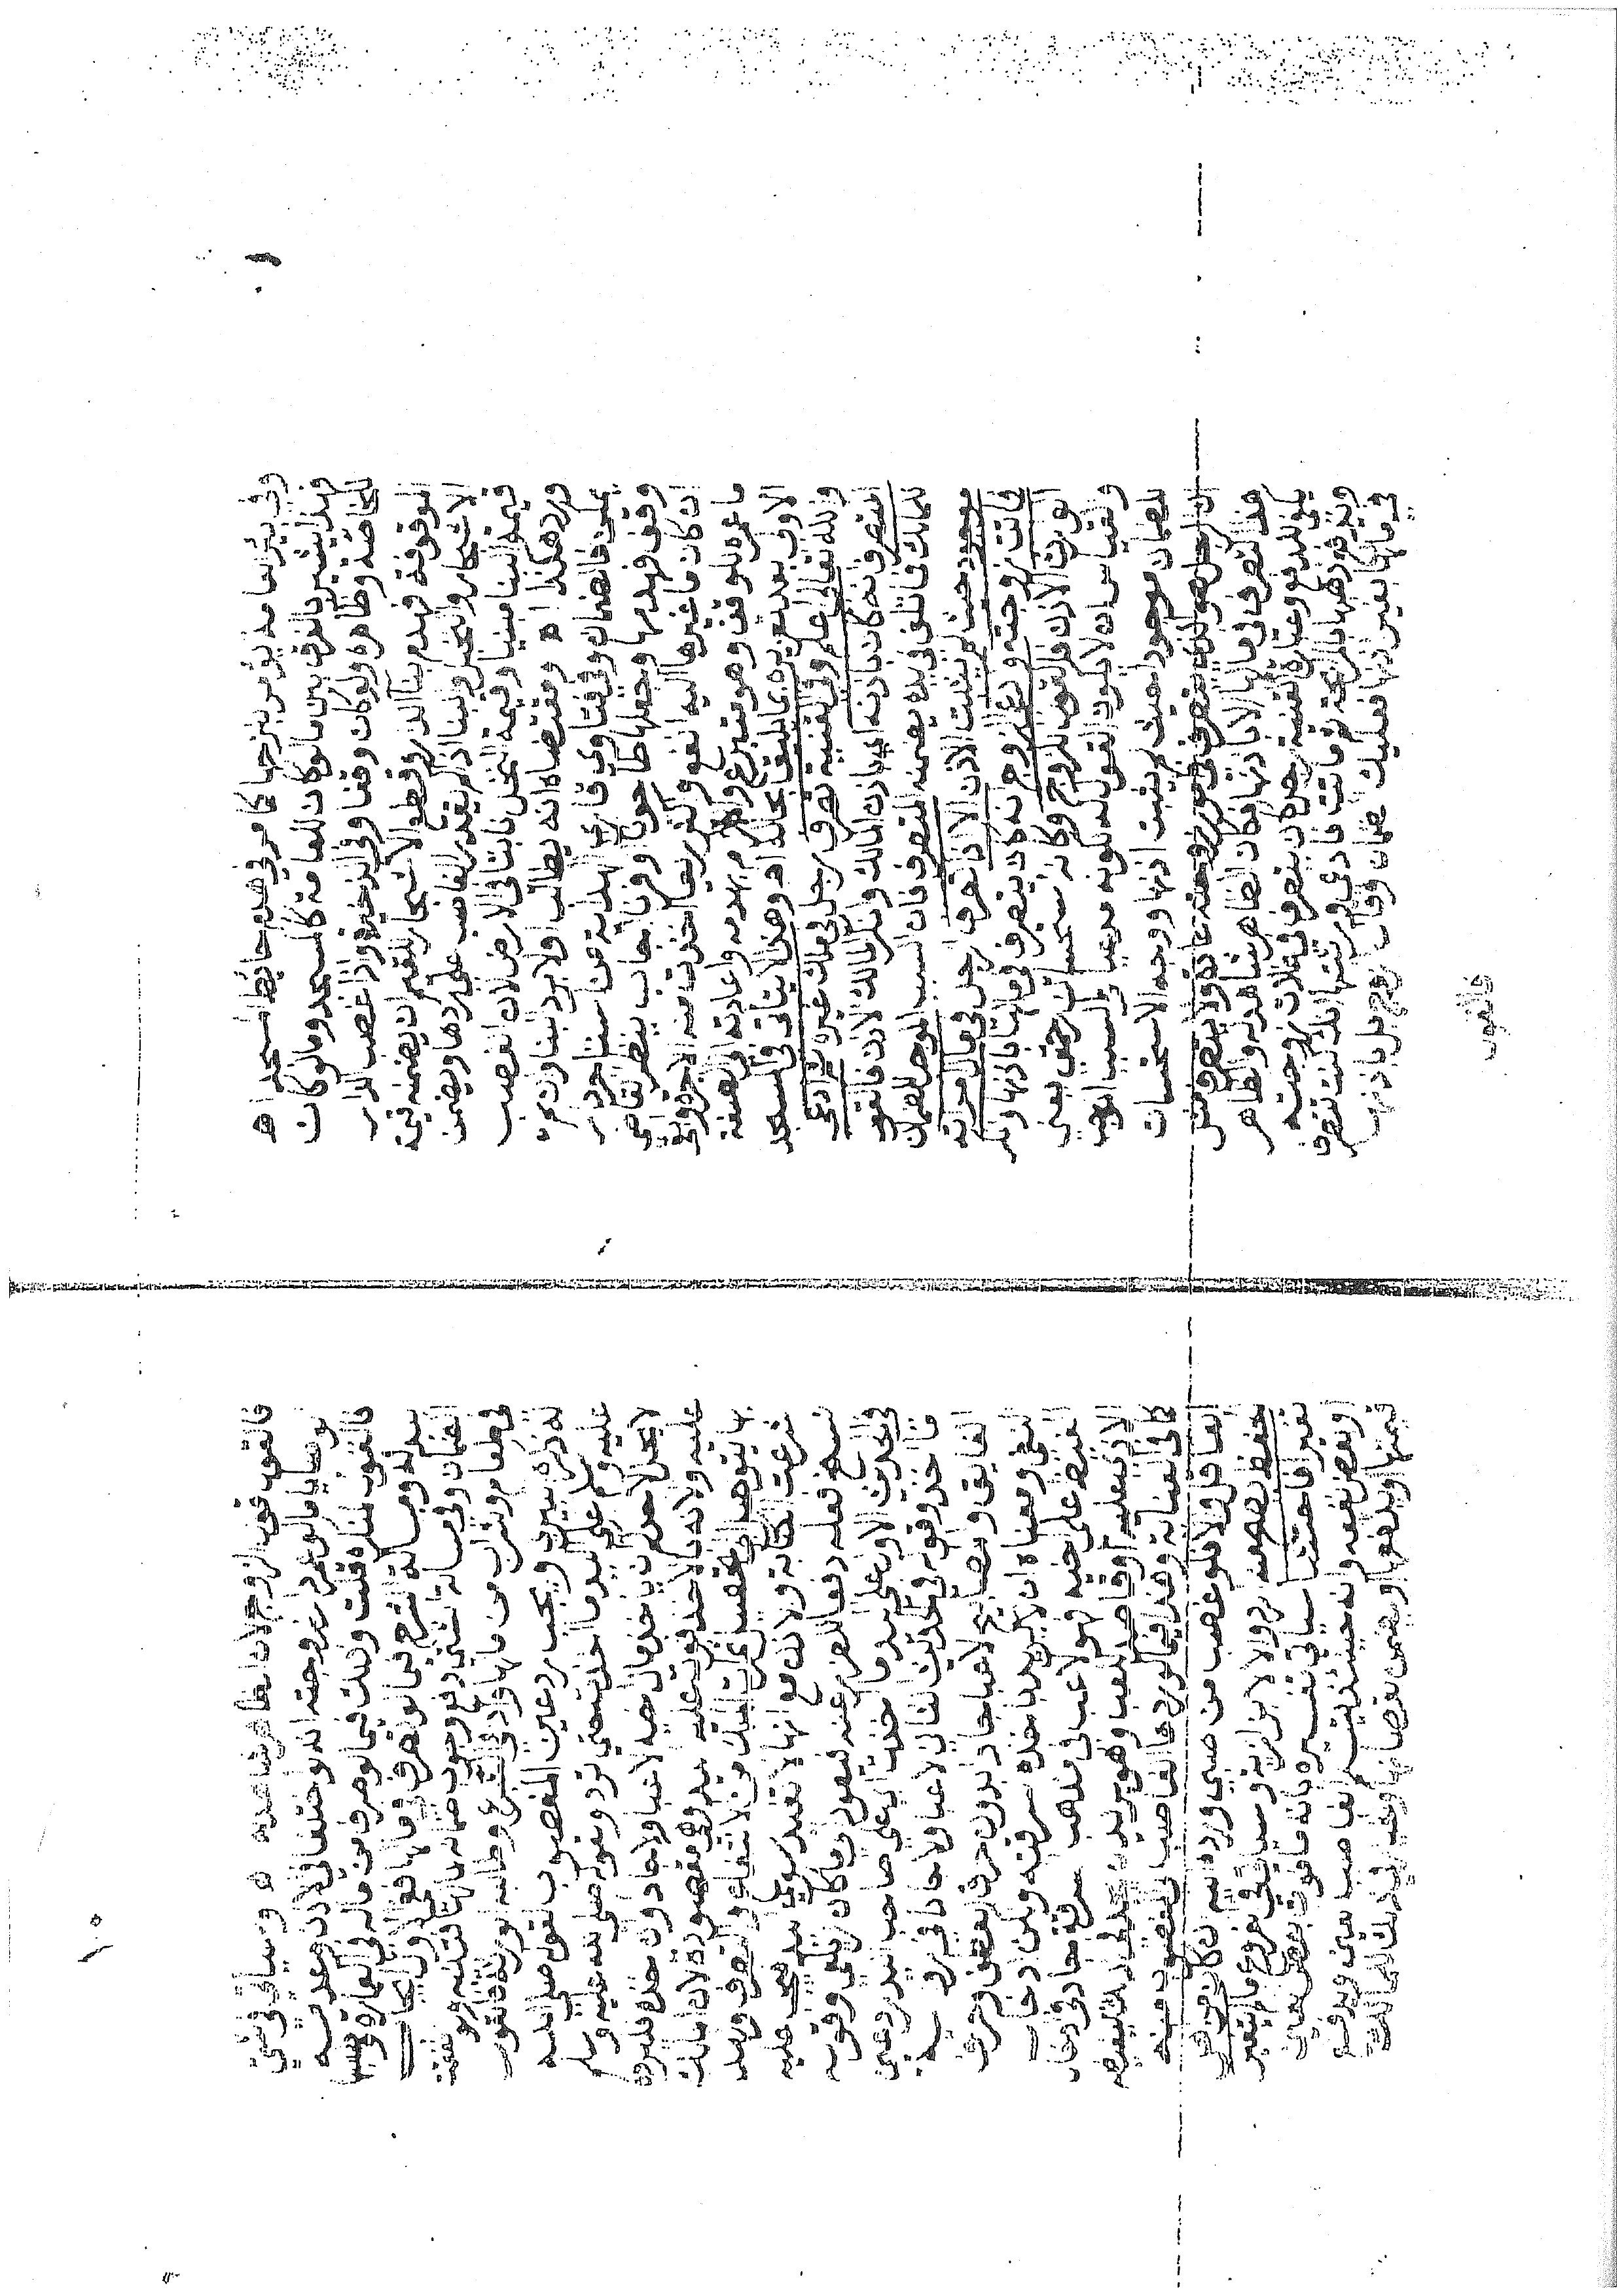 بنزحها كما مر فى هدم حائط المسجد اه
فهذا يشير بالفرق بين ما لو كان للعامة كالمسجد وما لو كان
للخاصة وظاهره ولو كان وقفا وفى الذخيرة واذا غصب الدار
الموقوفة فهدم بناء الدار وقطع الاشجار للقيم ان يضمنه قيمة
الاشجار والنخيل والبناء اذا لم يقدر الغاصب على ردها ويضمن
قيمة البناء مبنيا وقيمة النخل نابتا فى الارض لان الغصب
ورد هكذا اه ومقتضاه انه يطالب اولا برد البناء وان لم
يمكن فالضمان وفى فتاوى قارى الهداية عمن استأجر دار
وقف فهدمها وجعلها طاحونا او فرنا اجاب ينظر القاضى
ان كان ما غيرها اليه انفع واكثر ريعا اخذت منه الاجرة وبقى
ما عمره للوقف وهو متبرع والا الزم بهدمه واعادته الى الصفة
الاولى بعد تعزيره بما يليق بحاله اه وهذا لا يتأتى فى المسجد
والله تعالى اعلم وفى القنية تصرف رجل فى ملك غيره ثم ادعى
المتصرف انه كان باذنه اى باذن المالك وانكر المالك الاذن فالقول
للمالك فاتلف فى يده يضمنه المتصرف فان السبب الموجب للضمان
موجود حيث لم يثبت الاذن الا اذا تصرف الرجل فى مال امراته
فماتت زوجته وادعى الزوج انه كان يتصرف فى مالها باذنها وانكر
الوارث الاذن فالقول للزوج وكانه استحسان رحمتى يعنى
والقياس انه لا يكون القول له لكونه مدعيا والسبب الموجب
للضمان موجود حيث لم يثبت اذنها ووجه الاستحسان
ان الرجل هو الذى يتصرف فى امور زوجته عادة ولا يتصرف مثل
هذا التصرف فى مالها الا باذنها فكان الظاهر شاهدا له والظاهر
يكفى للدفع وعبارة القنية رجل كان يتصرف فى غلات زوجته
ويدفع ذهبها بالمرابحة ثم ماتت فادعى ورثتها انك كنت تتصرف
فى مالها بغير اذنها فعليك الضمان وقال الزوج بل باذنها
فالقول
فالقول قول الزوج لان الظاهر شاهد له اه وسياتى فى شتى
الوصايا ما لو عمر دار زوجته انه لو اختلفا فى الاذن وعدمه
فالقول لمنكره قلت وذلك فيما لو صرف من ماله فى العمارة
ومسألة الشرح فيما لو تصرف فى مالها
الضمان وفى مسألة شتى دفع وجوب ضمانه
فى طعام وشراب من مالها وطالبه الورثة فالقول
له ذكره بيرى ويجب رد عين المغصوب لقوله صلى الله
عليه وسلم على اليد ما اخذت حتى ترد ولقوله صلى الله عليه وسلم
لا يحل لاحدكم ان ياخذ مال اخيه لاعبا ولا جادا وان اخذه فليرده
عليه ولانه بالاخذ فوت عليه يده وهى مقصودة لان المالك
بها يتوصل الى تحصيل ثمرات الملك من الانتفاع والتصرف ولهذا
شرعت الكتابة والاذن مع انها لا تفيد سوى اليد فيجب عليه
نسخ فعله دفعا للضرر عنه فيعود الى ما كان زيلعى وقوله
فى الحديث الاول على اليد ما اخذت اى على صاحب اليد رد عين
ما اخذ وقوله فى الحديث الثانى لاعبا ولا جادا فيه
الفايق والمصابيح لاعبا جادا بدون حرف العطف وحرف
النفى ومعناه ان لا يريد باخذه سرقته ولكن ادخال
الغيظ على اخيه فهو لاعب فى مذهب السرقة جاد فى ادخال
الاذى عليه او قاصد للعب وهو يريد ليغيظه
كما فى العناية وهذا فيما لو رده الغاصب للمغصوب منه
العاقل فلو غصب من صبى ورده اليه ان كان من اهل
الحفظ يصح والا لا بزازية وسياتى فى الفروع ما لم يتغير
تغيرا فاحشا سياتى تفسيره بانه ما فوت بعض العين
او بعض نفعه وانه حينئذ يسلم الغاصب العين ويدفع
قيمتها او يدفعها ويضمن نقصانها والخيار فى ذلك للمالك